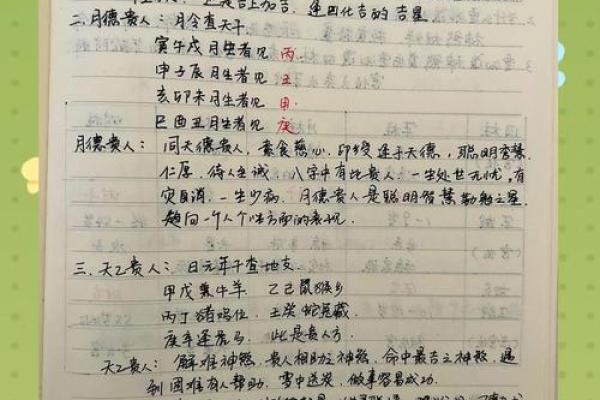 是吉上加吉、逢凶化吉的吉星
二、月德贵人：月令查天干
寅午戌月生者见 丙
申子辰月生者见 王
亥卯未月生者见 甲
巳酉丑月生者见 庚
月德贵人：同天德贵人，素食慈心，印绶逢于天德，聪明李慧
仁厚，待人至诚，八字中有此贵人，一生处世无忧，有
灾自消，一生少病，月德贵人是聪明智慧勤勉之星，
趋向一个人个性方面的表现。
三、天乙贵人：日元年干查地支
甲戊兼牛羊 乙己鼠猴乡
丙丁猪鸡位 壬癸蛇兔藏
庚辛逢虎马 此是贵人方
天乙贵人：解难神煞，贵人相助之神煞，命中最吉之神煞，遇
到困难有人帮助，雪中送炭，做事容易成功，